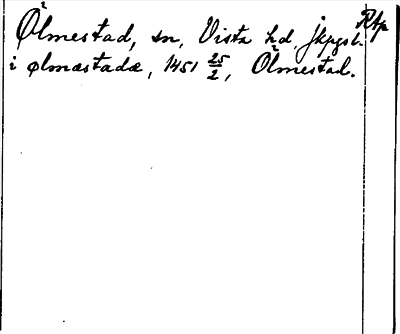 Ölmestad, sn, Vista hd, Jkpgs l. Rfp
i ølmæstadæ, 1451 25/2, Ölmestad.